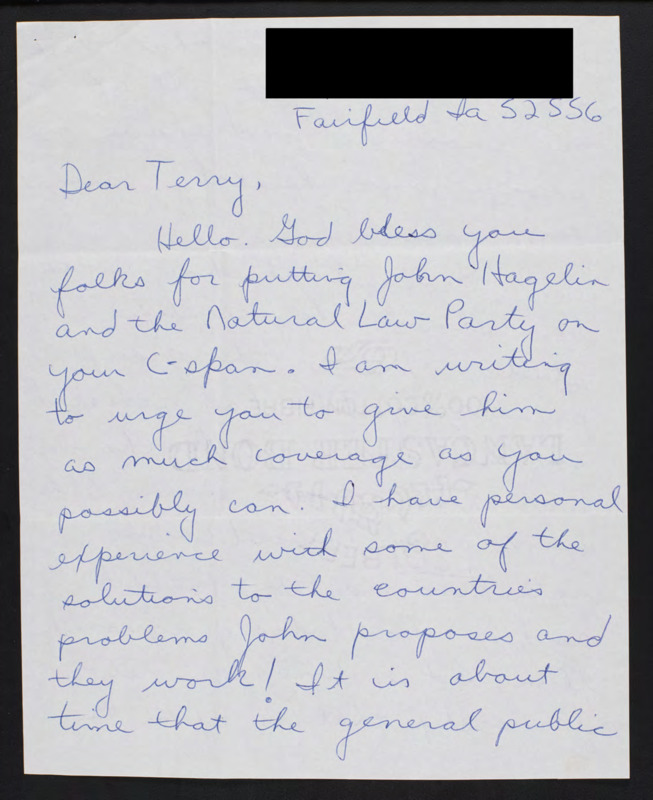 Fairfield Ia 52556
Dear Terry,
Hello. God bless you
folks for putting John Hagelin
and the Natural Law Party on
your C-span. I am writing
to urge you to give him
as much coverage as you
possibly can. I have personal
experience with some of the
solutions to the countries
problems John proposes and
they work! It is about
time that the general public